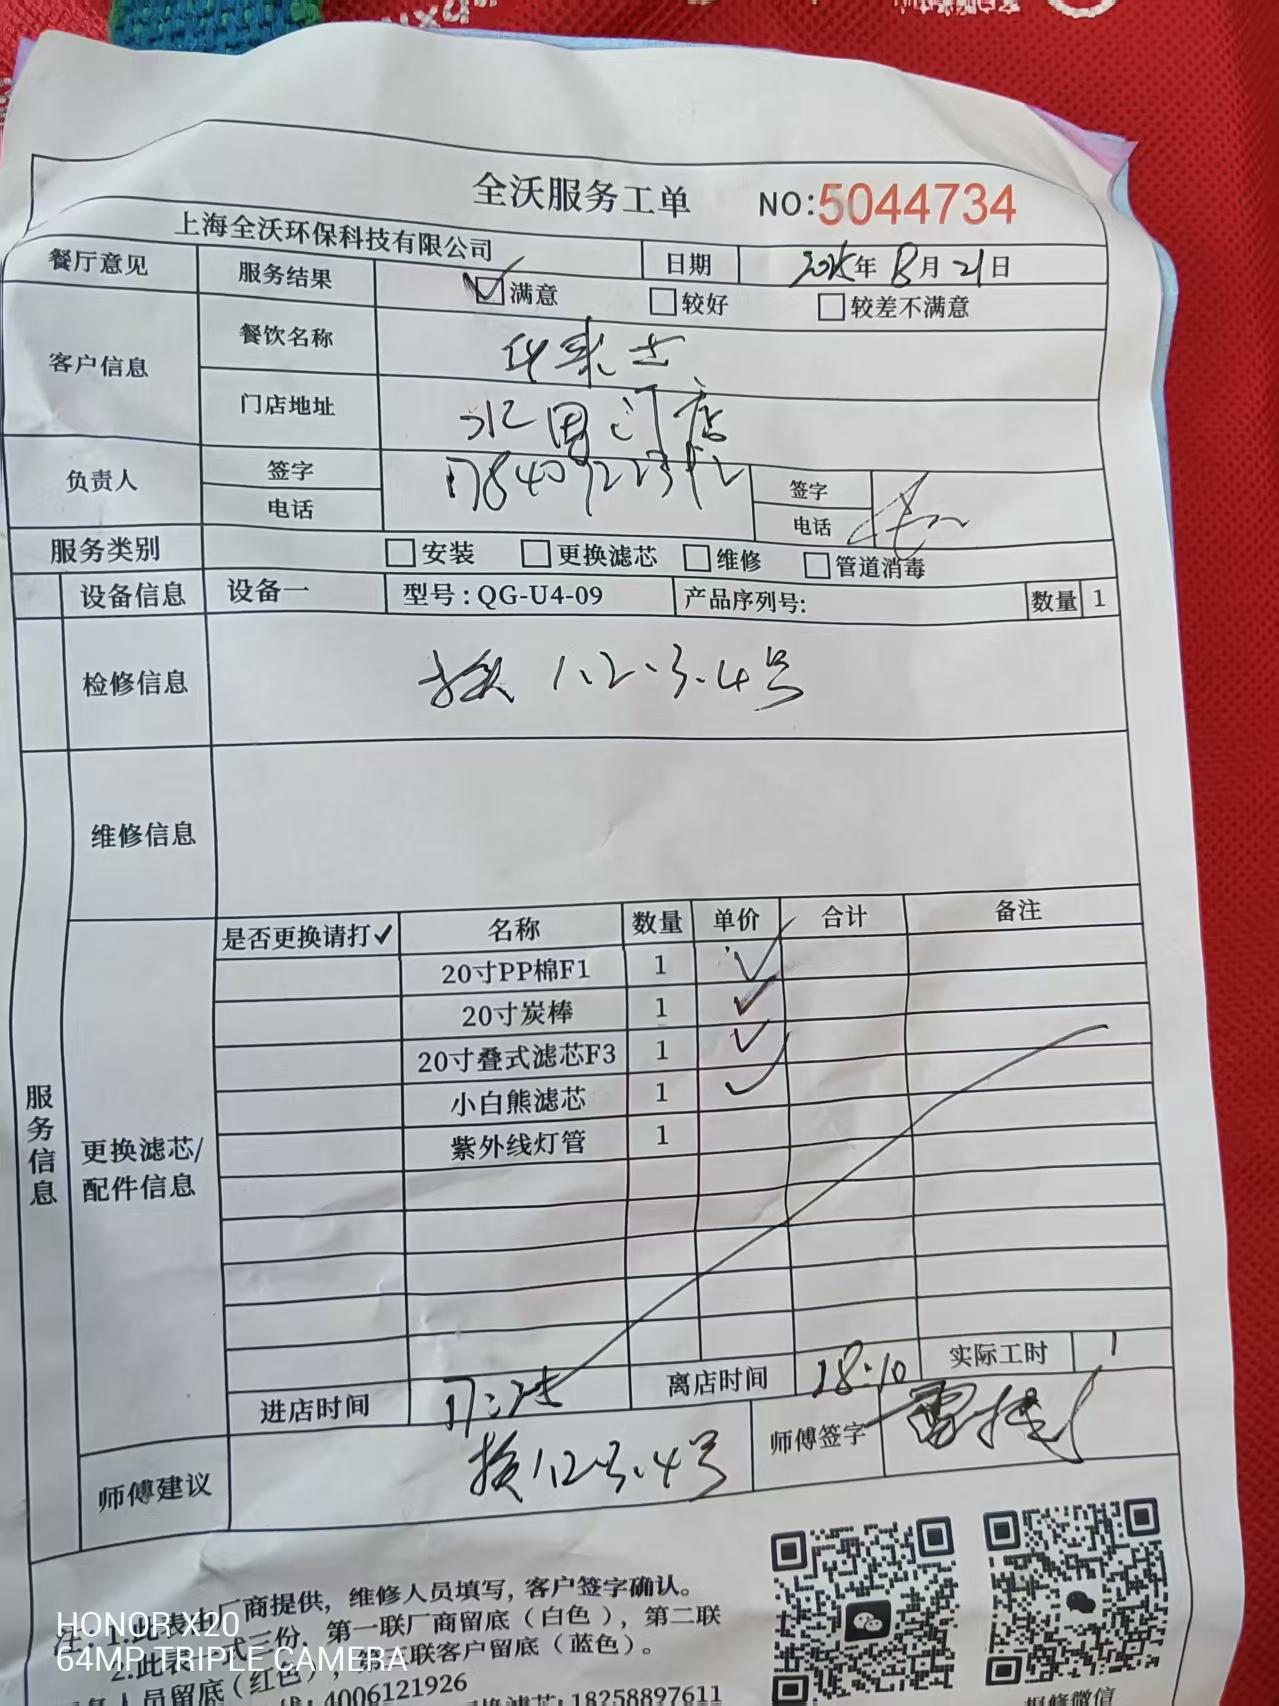 全沃服务工单 NO:5044734
上海全沃环保科技有限公司 日期 2025年8月21日
餐厅意见 服务结果 满意 较好 较差不满意
客户信息 餐饮名称 华莱士
门店地址 门店
负责人 签字 签字
电话 电话
服务类别 安装 更换滤芯 维修 管道消毒
设备信息 设备一 型号:QG-U4-09 产品序列号: 数量 1
检修信息 换1.2.3.4号
维修信息
服务信息
更换滤芯/
配件信息
是否更换请打✓ 名称 数量 单价 合计 备注
20寸PP棉F1 1 ✓
20寸炭棒 1 ✓
20寸叠式滤芯F3 1 ✓
小白熊滤芯 1 ✓
紫外线灯管 1
进店时间 17:25 离店时间 18:10 实际工时 1
师傅建议 换1.2.3.4号 师傅签字
注:1.此表由厂商提供，维修人员填写，客户签字确认。
2.此表一式三份，第一联厂商留底（白色），第二联
人员留底（红色） 联客户留底（蓝色）。
4006121926 换滤芯:18258897611
报修微信
HONOR X20
64MP TRIPLE CAMERA